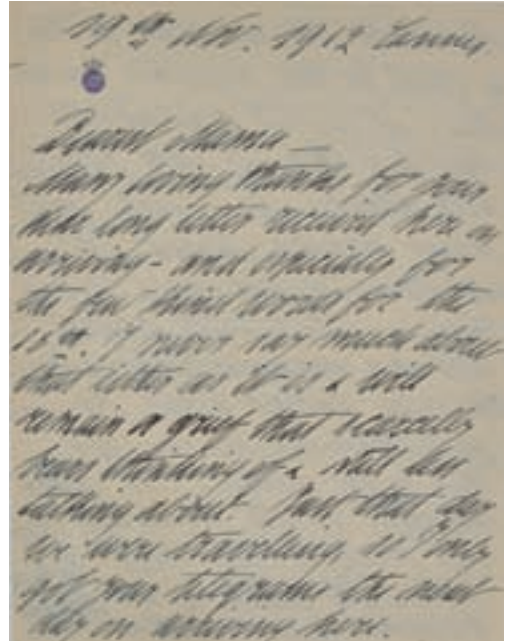 19th Nov. 1912
Dearest Mama —
Many loving thanks for your
dear long letter received here on
arriving - and especially for
the few kind words for the
I never say much about
that either as it is & will
remain a grief that scarcely
bears thinking of & still less
talking about. Just that day
we were travelling, so I only
got your telegrams the next
day on arriving here.